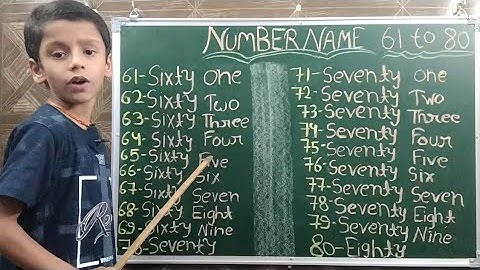 NUMBER NAME 61 to 80
61-Sixty One
62-Sixty Two
63-Sixty Three
64-Sixty Four
65-Sixty Five
66-Sixty Six
67-Sixty Seven
68-Sixty Eight
69-Sixty Nine
70-Seventy
71-Seventy One
72-Seventy Two
73-Seventy Three
74-Seventy Four
75-Seventy Five
76-Seventy Six
77-Seventy Seven
78-Seventy Eight
79-Seventy Nine
80-Eighty